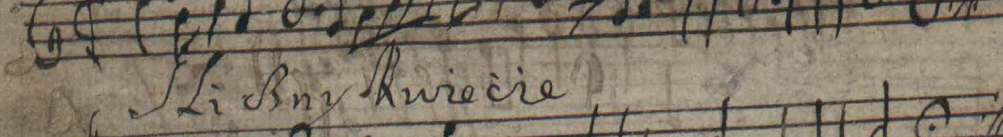 Slicżny Kwiecie